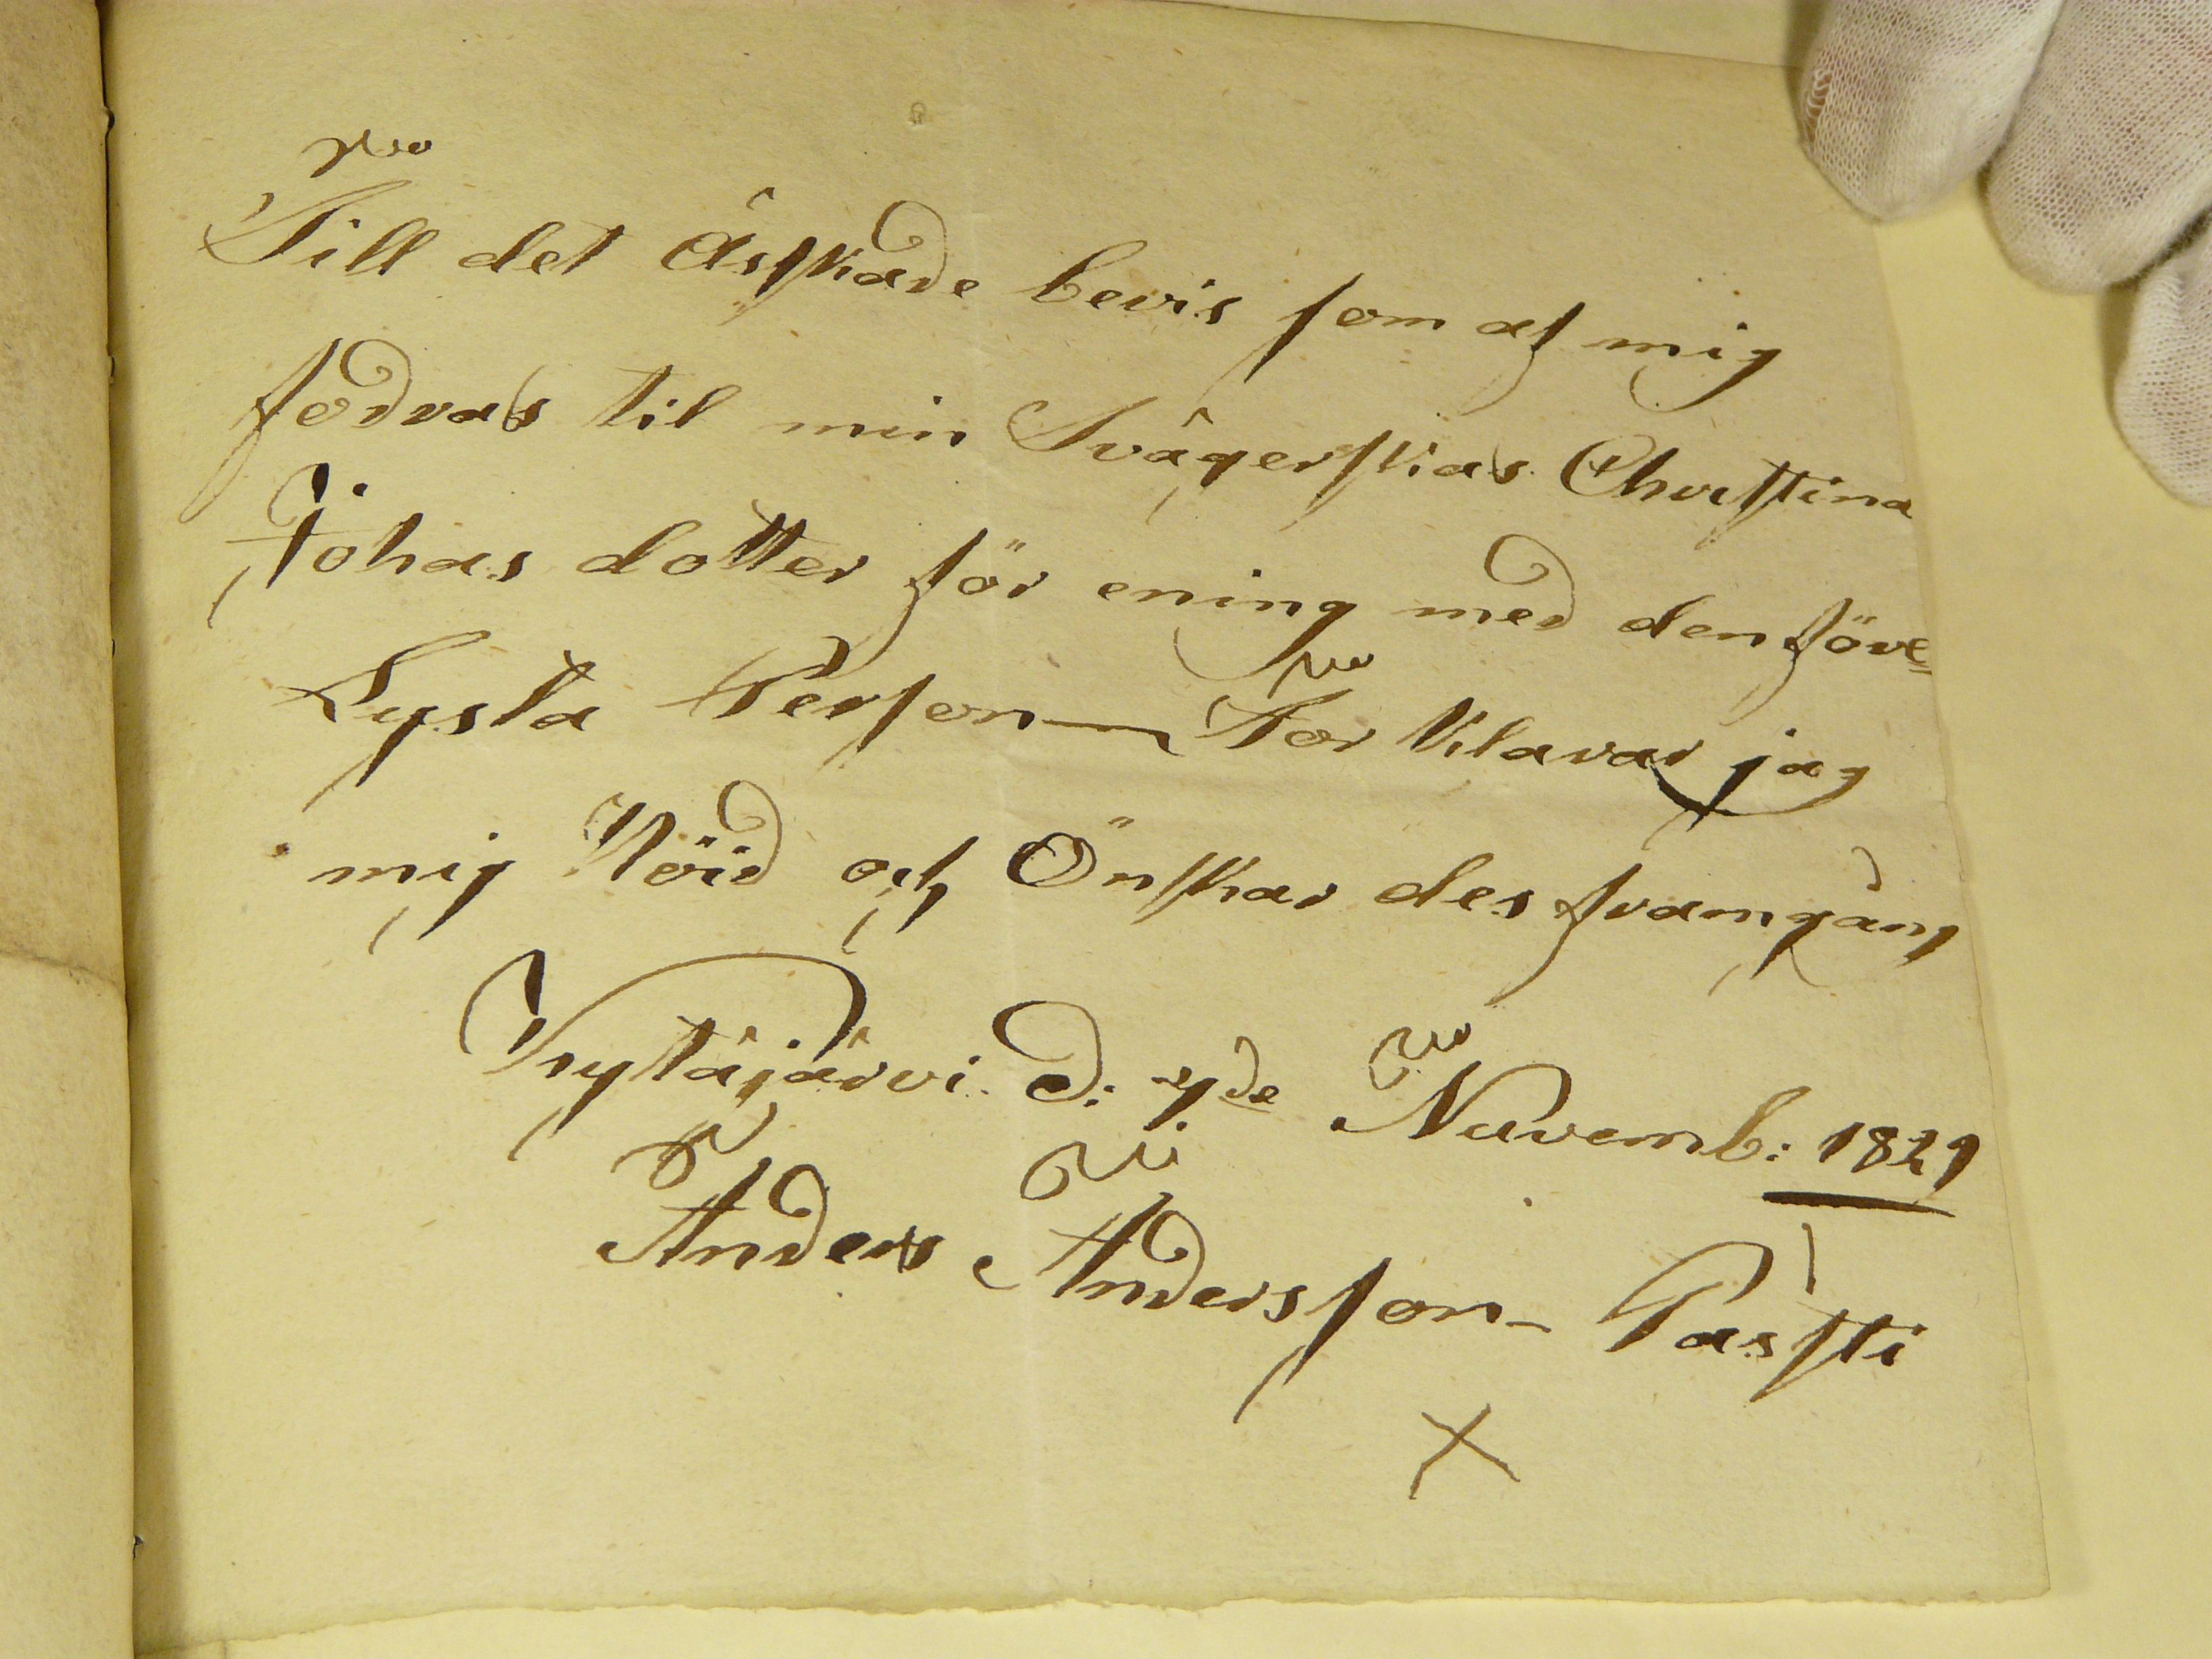 Till det Äsfkade bevis som af mig
fodras til min Svägerskas Christina
Johas dotter för ening med den före
Lysta Person For Klarar jag
mig Nöid och Önskar des framgång
Kytäjärvi d: 7de Nuvemb: 1829
Anders Andersson Pasfti
X